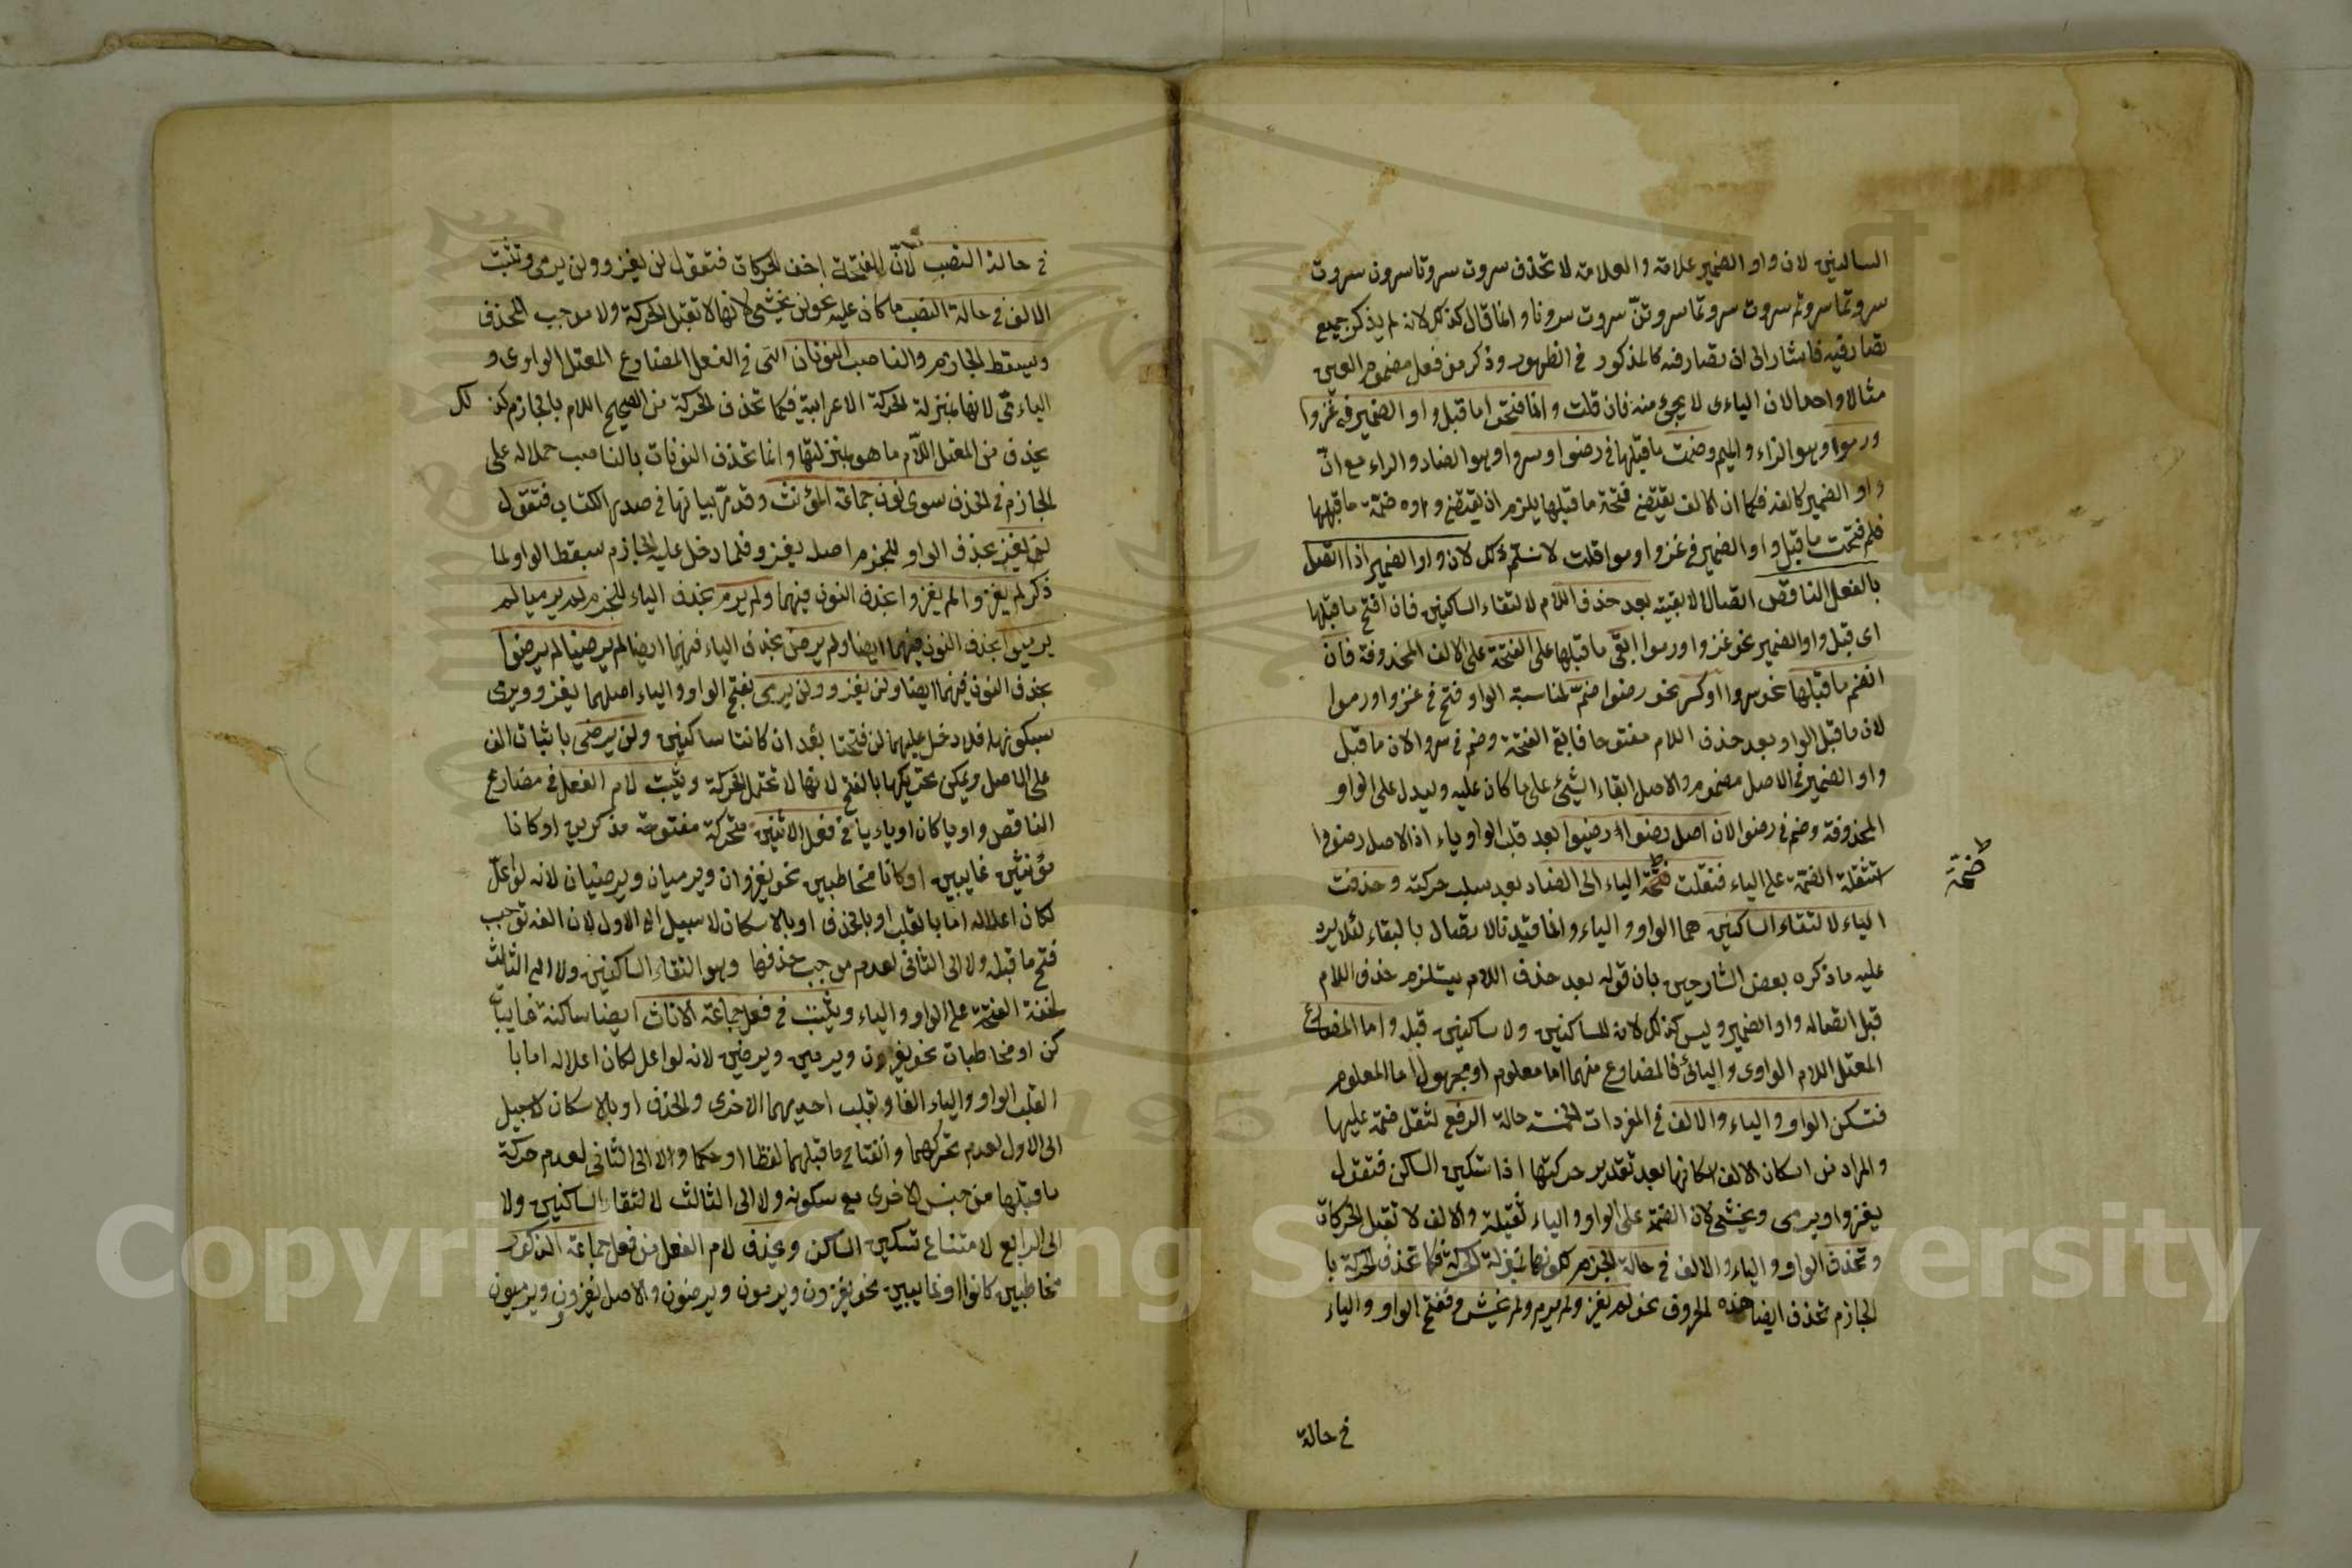 الساكنين لان واو الضمير علامة والعلامة لا تحذف سروت سروتا سرون سروت
سروتما سروتم سروت سروتما سروتن سروت سرونا وانما قال كذلك لانه لم يذكر جميع
تصاريفه فاشار الى ان تصاريفه كالمذكور في الظهور وذكر من فعل مضموم العين
مثالا واحدا لان الياءى لا يجئ منه فان قلت وانما فتحوا ما قبل واو الضمير في غزوا
ورموا وهو الزاء والميم وضمت ما قبلها في رضوا وسروا وهو الضاد والراء مع انّ
واو الضمير كالفه فكما ان الالف يقتضى فتحة ما قبلها يلزم ان يقتضى واوه ضمة ما قبلها
فلم فتحت ما قبل واو الضمير في غزوا ورموا قلت لا نسلم ذلك لان واو الضمير اذا اتصل
بالفعل الناقص اتصالا لا بقيته بعد حذف اللام لالتقاء الساكنين فان افتح ما قبلها
اى قبل واو الضمير نحو غزوا ورموا ابقى ما قبلها على الفتحة على الالف المحذوفة فان
انضم ما قبلها نحو سروا او كسر نحو رضوا ضمّ لمناسبة الواو فتح في غزوا ورموا
لان ما قبل الواو بعد حذف اللام مفتوحا فابقى الفتحة وضم في سروا لان ما قبل
واو الضمير في الاصل مضموم والاصل ابقاء الشيئ على ما كان عليه وليدل على الواو
المحذوفة وضم في رضوا لان اصل رضوا رضيوا بعد قلب الواو ياء اذ الاصل رضووا
استثقلت الضمة على الياء فنقلت ضمة الياء الى الضاد بعد سلب حركته وحذفت
ضمة
الياء لالتقاء الساكنين هما الواو والياء وانما قيدنا الاتصال بالبقاء لئلا يرد
عليه ما ذكره بعض الشارحين بان قوله بعد حذف اللام يستلزم حذف اللام
قبل اتصاله واو الضمير وليس كذلك لانه للساكنين ولا ساكنين قبله واما المضارع
المعتل اللام الواوى واليائى فالمضارع منهما اما معلوم او مجهول اما المعلوم
فتسكن الواو والياء والالف في المفردات الخمسة حالة الرفع لثقل ضمة عليها
والمراد من اسكان الالف اسكانها بعد تقدير حركتها اذا تسكين الساكن فتقول
يغزو ويرمى ويخشى لان الضمة على الواو والياء ثقيلة والالف لا تقبل الحركات
وتحذف الواو والياء والالف في حالة الجزم لكونها بمنزلة الحركة فكما تحذف الحركة با
لجازم تحذف ايضا هذه الحروف نحو لم يغز ولم يرم ولم يخش وتفتح الواو والياء
في حالة
في حالة النصب لانّ الفتحة اخف الحركات فتقول لن يغزو ولن يرمى وتثبت
الالف في حالة النصب ما كان عليه نحو لن يخشى لانها لا تقبل الحركة ولا موجب للحذف
ويسقط الجازم والناصب النونات التى في الفعل المضارع المعتل الواوى و
الياءىّ لانها بمنزلة الحركة الاعرابية فكما تحذف الحركة من الصحيح اللام بالجازم كذلك
يحذف من المعتل اللّام ما هو بمنزلتها وانما تحذف النونات بالناصب حملا له على
الجازم في الحذف سوى نون جماعة المؤنث وقد مرّ بيانها في صدر الكتاب فتقول
لم يغز بحذف الواو للجزم اصله يغزو فلما دخل عليه الجازم سقط الواو لما
ذكر لم يغزوا لم يغزوا بحذف النون فيهما ولم يرم بحذف الياء للجزم لم يرميا لم
يرميوا بحذف النون فيهما ايضا ولم يرض بحذف الياء فيهما ايضا لم يرضيا لم يرضوا
بحذف النون فيهما ايضا ولن يغزو ولن يرمى بفتح الواو والياء اصلهما يغزو ويرمى
بسكونهما فلما دخل عليهما لن فتحتا بعد ان كانتا ساكنين ولن يرضى باثبات الف
على الاصل ويمكن تحريكها بالفتح لانها لا تحتمل الحركة ويثبت لام الفعل في مضارع
الناقص واويا كان او ياءيا في فعل الاثنين متحركة مفتوحة مذكرين او كانا
مؤنثين غايبين او كانا مخاطبين نحو يغزوان ويرميان ويرضيان لانه لو اعلّ
لكان اعلاله اما بالقلب او بالحذف او بالاسكان لا سبيل الى الاول لان الفه توجب
فتح ما قبله ولا الى الثانى لعدم موجب حذفها وهو التقاء الساكنين ولا الى الثالث
لخفة الفتحة على الواو والياء ويثبت في فعل جماعة الاناث ايضا ساكنة غايبات
كن او مخاطبات نحو يغزون ويرمين ويرضين لانه لو اعل لكان اعلاله اما با
القلب الواو والياء الفا وبقلب احديهما الاخرى والحذف او بالاسكان لا سبيل
الى الاول لعدم تحركهما وانفتاح ما قبلهما لفظا او حكما ولا الى الثانى لعدم حركة
ما قبلها من جنس الاخرى مع سكونه ولا الى الثالث لالتقاء الساكنين ولا
الى الرابع لامتناع تسكين الساكن ويحذف لام الفعل من فعل جماعة الذكور
مخاطبين كانوا او غايبين نحو يغزون ويرمون ويرضون والاصل يغزوون ويرميون
1957
Copyright © King Saud University